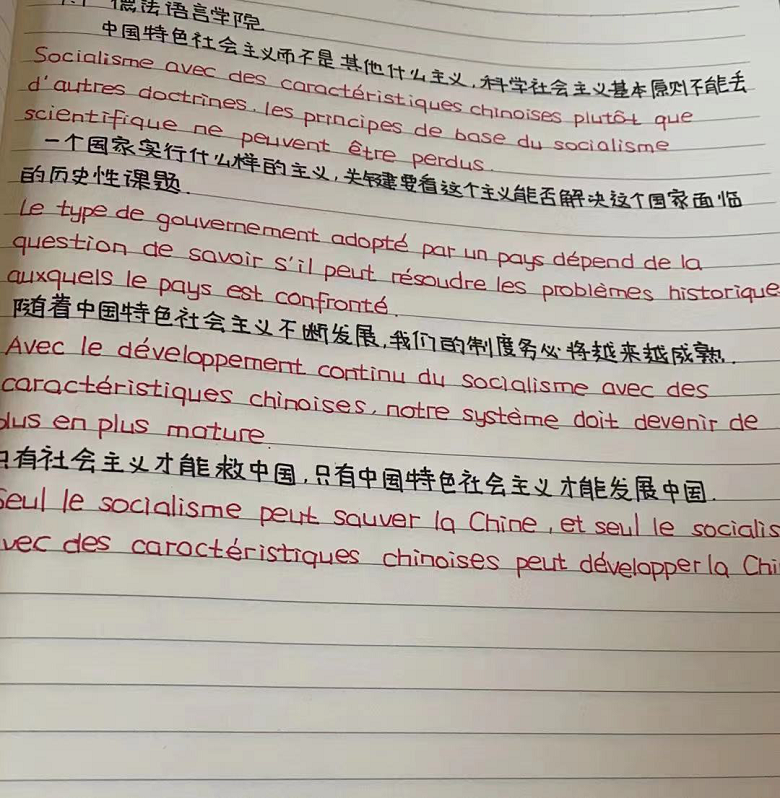 德法语言学院
中国特色社会主义而不是其他什么主义，科学社会主义基本原则不能丢
Socialisme avec des caractéristiques chinoises plutôt que
d'autres doctrines, les principes de base du socialisme
scientifique ne peuvent être perdus.
一个国家实行什么样的主义，关键要看这个主义能否解决这个国家面临
的历史性课题.
Le type de gouvernement adopté par un pays dépend de la
question de savoir s'il peut résoudre les problèmes historique
auxquels le pays est confronté.
随着中国特色社会主义不断发展，我们的制度务必将越来越成熟.
Avec le développement continu du socialisme avec des
caractéristiques chinoises, notre système doit devenir de
plus en plus mature.
只有社会主义才能救中国，只有中国特色社会主义才能发展中国.
Seul le socialisme peut sauver la Chine, et seul le socialis
vec des caractéristiques chinoises peut développer la Chi